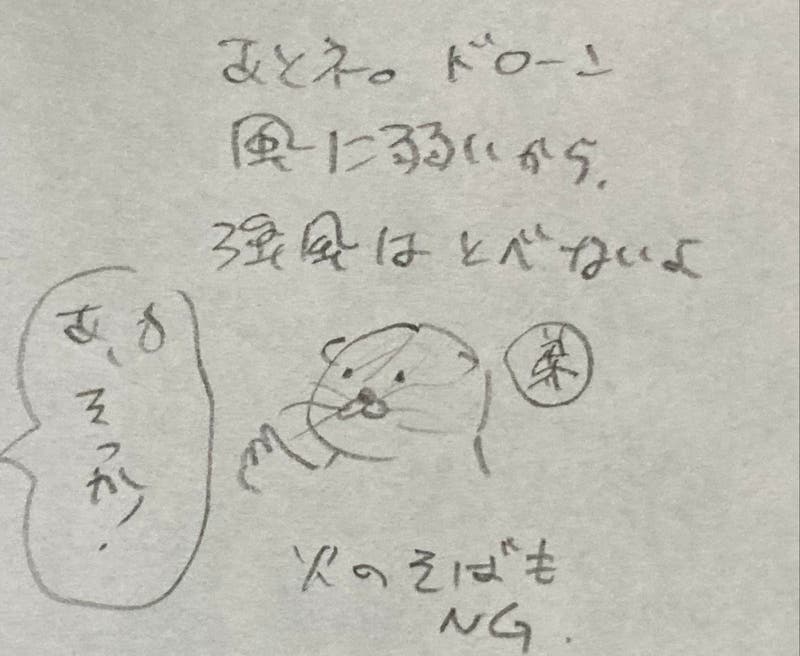 あとネ。ドローン
風に弱いから、
強風はとべないよ
あ、
そっか!
火のそばも
NG.